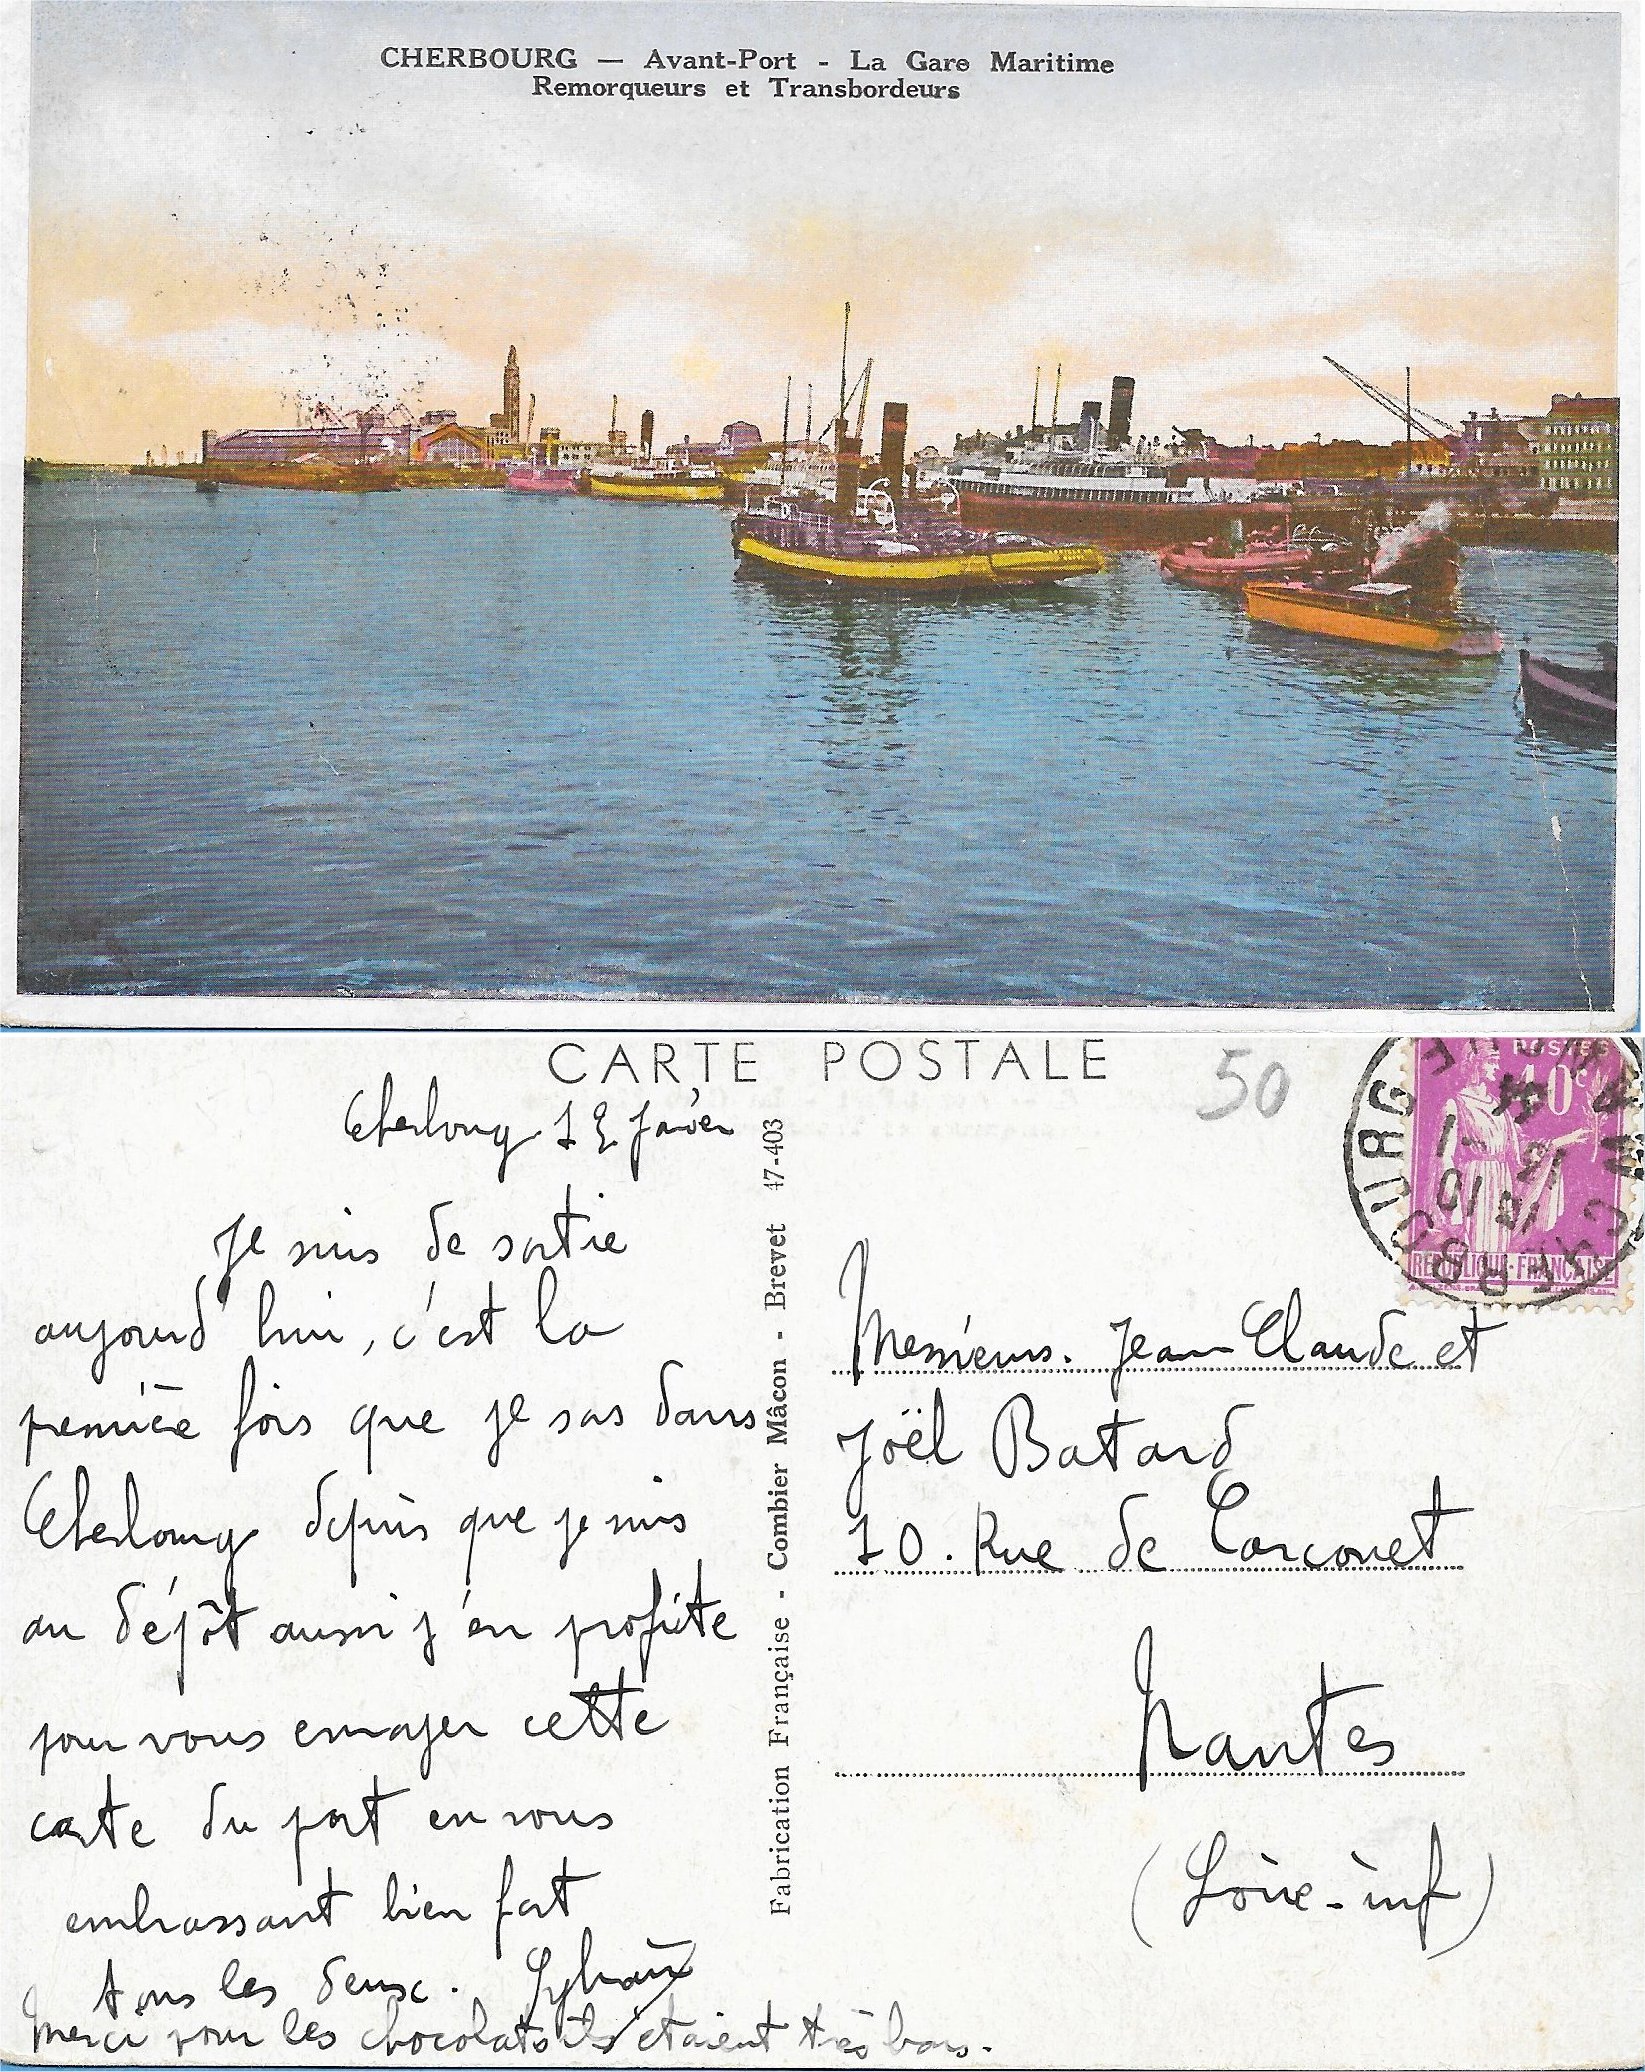 CHERBOURG — Avant-Port - La Gare Maritime
Remorqueurs et Transbordeurs
CARTE POSTALE
50
POSTES
40c
REPUBLIQUE·FRANÇAISE
Cherbourg
Je suis de sortie
aujourd'hui, c'est la
première fois que je sors dans
Cherbourg depuis que je suis
au dépôt aussi j'en profite
pour vous envoyer cette
carte du port en vous
embrassant bien fort
tous les deux. Sylvain
Merci pour les chocolats ils étaient très bons.
Fabrication Française - Combier Mâcon - Brevet 47-403
Messieurs. Jean Claude et
Joël Batard
10. Rue de Carcouet
Nantes
(Loire-inf)